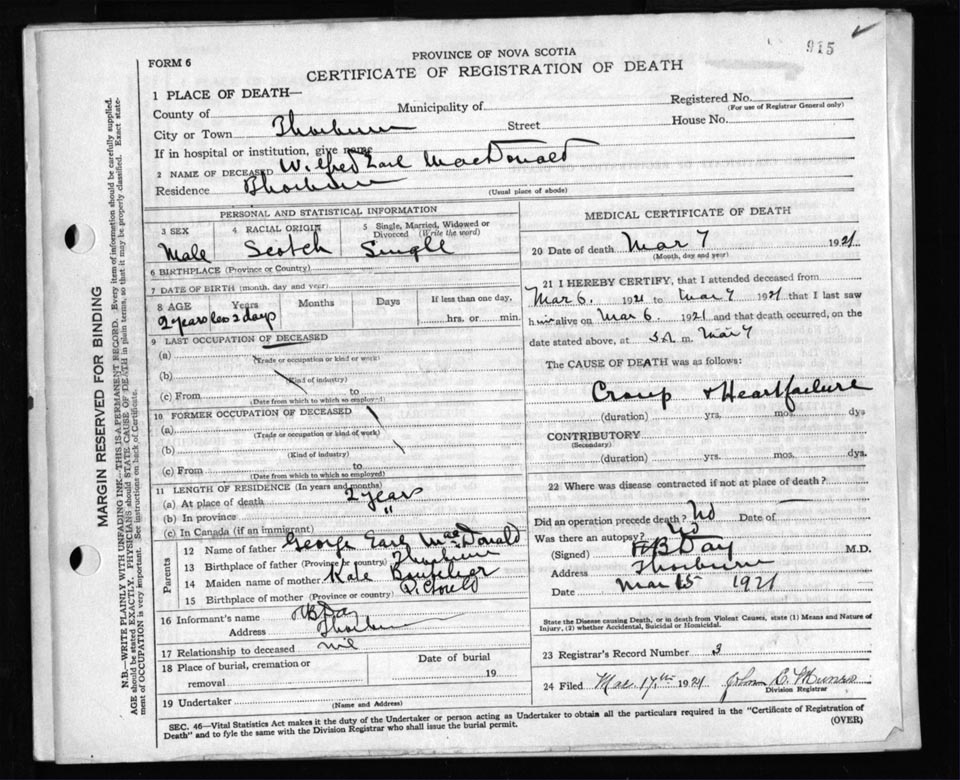 915
FORM 6
PROVINCE OF NOVA SCOTIA
CERTIFICATE OF REGISTRATION OF DEATH
MARGIN RESERVED FOR BINDING
N.B.—WRITE PLAINLY WITH UNFADING INK—THIS IS A PERMANENT RECORD. Every item of information should be carefully supplied.
AGE should be stated EXACTLY. PHYSICIANS should STATE CAUSE OF DEATH in plain terms, so that it may be properly classified. Exact state-
ment of OCCUPATION is very important. See instructions on back of Certificate.
1 PLACE OF DEATH—
County of
Municipality of
Registered No.
(For use of Registrar General only)
City or Town Thorburn
Street
House No.
If in hospital or institution, give name
2 NAME OF DECEASED Wilfred Earl MacDonald
Residence Thorburn
(Usual place of abode)
PERSONAL AND STATISTICAL INFORMATION
3 SEX
Male
4 RACIAL ORIGIN
Scotch
5 Single, Married, Widowed or
Divorced (Write the word)
Single
6 BIRTHPLACE (Province or Country)
7 DATE OF BIRTH (month, day and year)
8 AGE Years Months Days If less than one day,
2 years less 2 days hrs. or min.
9 LAST OCCUPATION OF DECEASED
(a)
(Trade or occupation or kind of work)
(b)
(Kind of industry)
(c) From to
(Date from which to which so employed)
10 FORMER OCCUPATION OF DECEASED
(a)
(Trade or occupation or kind of work)
(b)
(Kind of industry)
(c) From to
(Date from which to which so employed)
11 LENGTH OF RESIDENCE (In years and months)
(a) At place of death 2 years
(b) In province "
(c) In Canada (if an immigrant)
Parents
12 Name of father George Earl MacDonald
13 Birthplace of father (Province or country) Thorburn
14 Maiden name of mother Kate Boutilier
15 Birthplace of mother (Province or country) Pictou
16 Informant's name HB Day
Address Thorburn
17 Relationship to deceased nil
18 Place of burial, cremation or
removal
Date of burial
19
19 Undertaker
(Name and Address)
MEDICAL CERTIFICATE OF DEATH
20 Date of death Mar 7 1921
(Month, day and year)
21 I HEREBY CERTIFY, that I attended deceased from
Mar 6. 1921 to Mar 7 1921 that I last saw
h im alive on Mar 6. 1921 and that death occurred, on the
date stated above, at m. Mar 7
The CAUSE OF DEATH was as follows:
Croup + Heart failure
(duration) yrs. mos. dys
CONTRIBUTORY
(Secondary)
(duration) yrs. mos. dys.
22 Where was disease contracted if not at place of death?
Did an operation precede death? No Date of
Was there an autopsy? No
(Signed) HB Day M.D.
Address Thorburn
Date Mar 15 1921
State the Disease causing Death, or in death from Violent Causes, state (1) Means and Nature of
Injury, (2) whether Accidental, Suicidal or Homicidal.
23 Registrar's Record Number 3
24 Filed Mar. 17th 1921 John C. Munro
Division Registrar
SEC. 46—Vital Statistics Act makes it the duty of the Undertaker or person acting as Undertaker to obtain all the particulars required in the "Certificate of Registration of
Death" and to fyle the same with the Division Registrar who shall issue the burial permit.
(OVER)